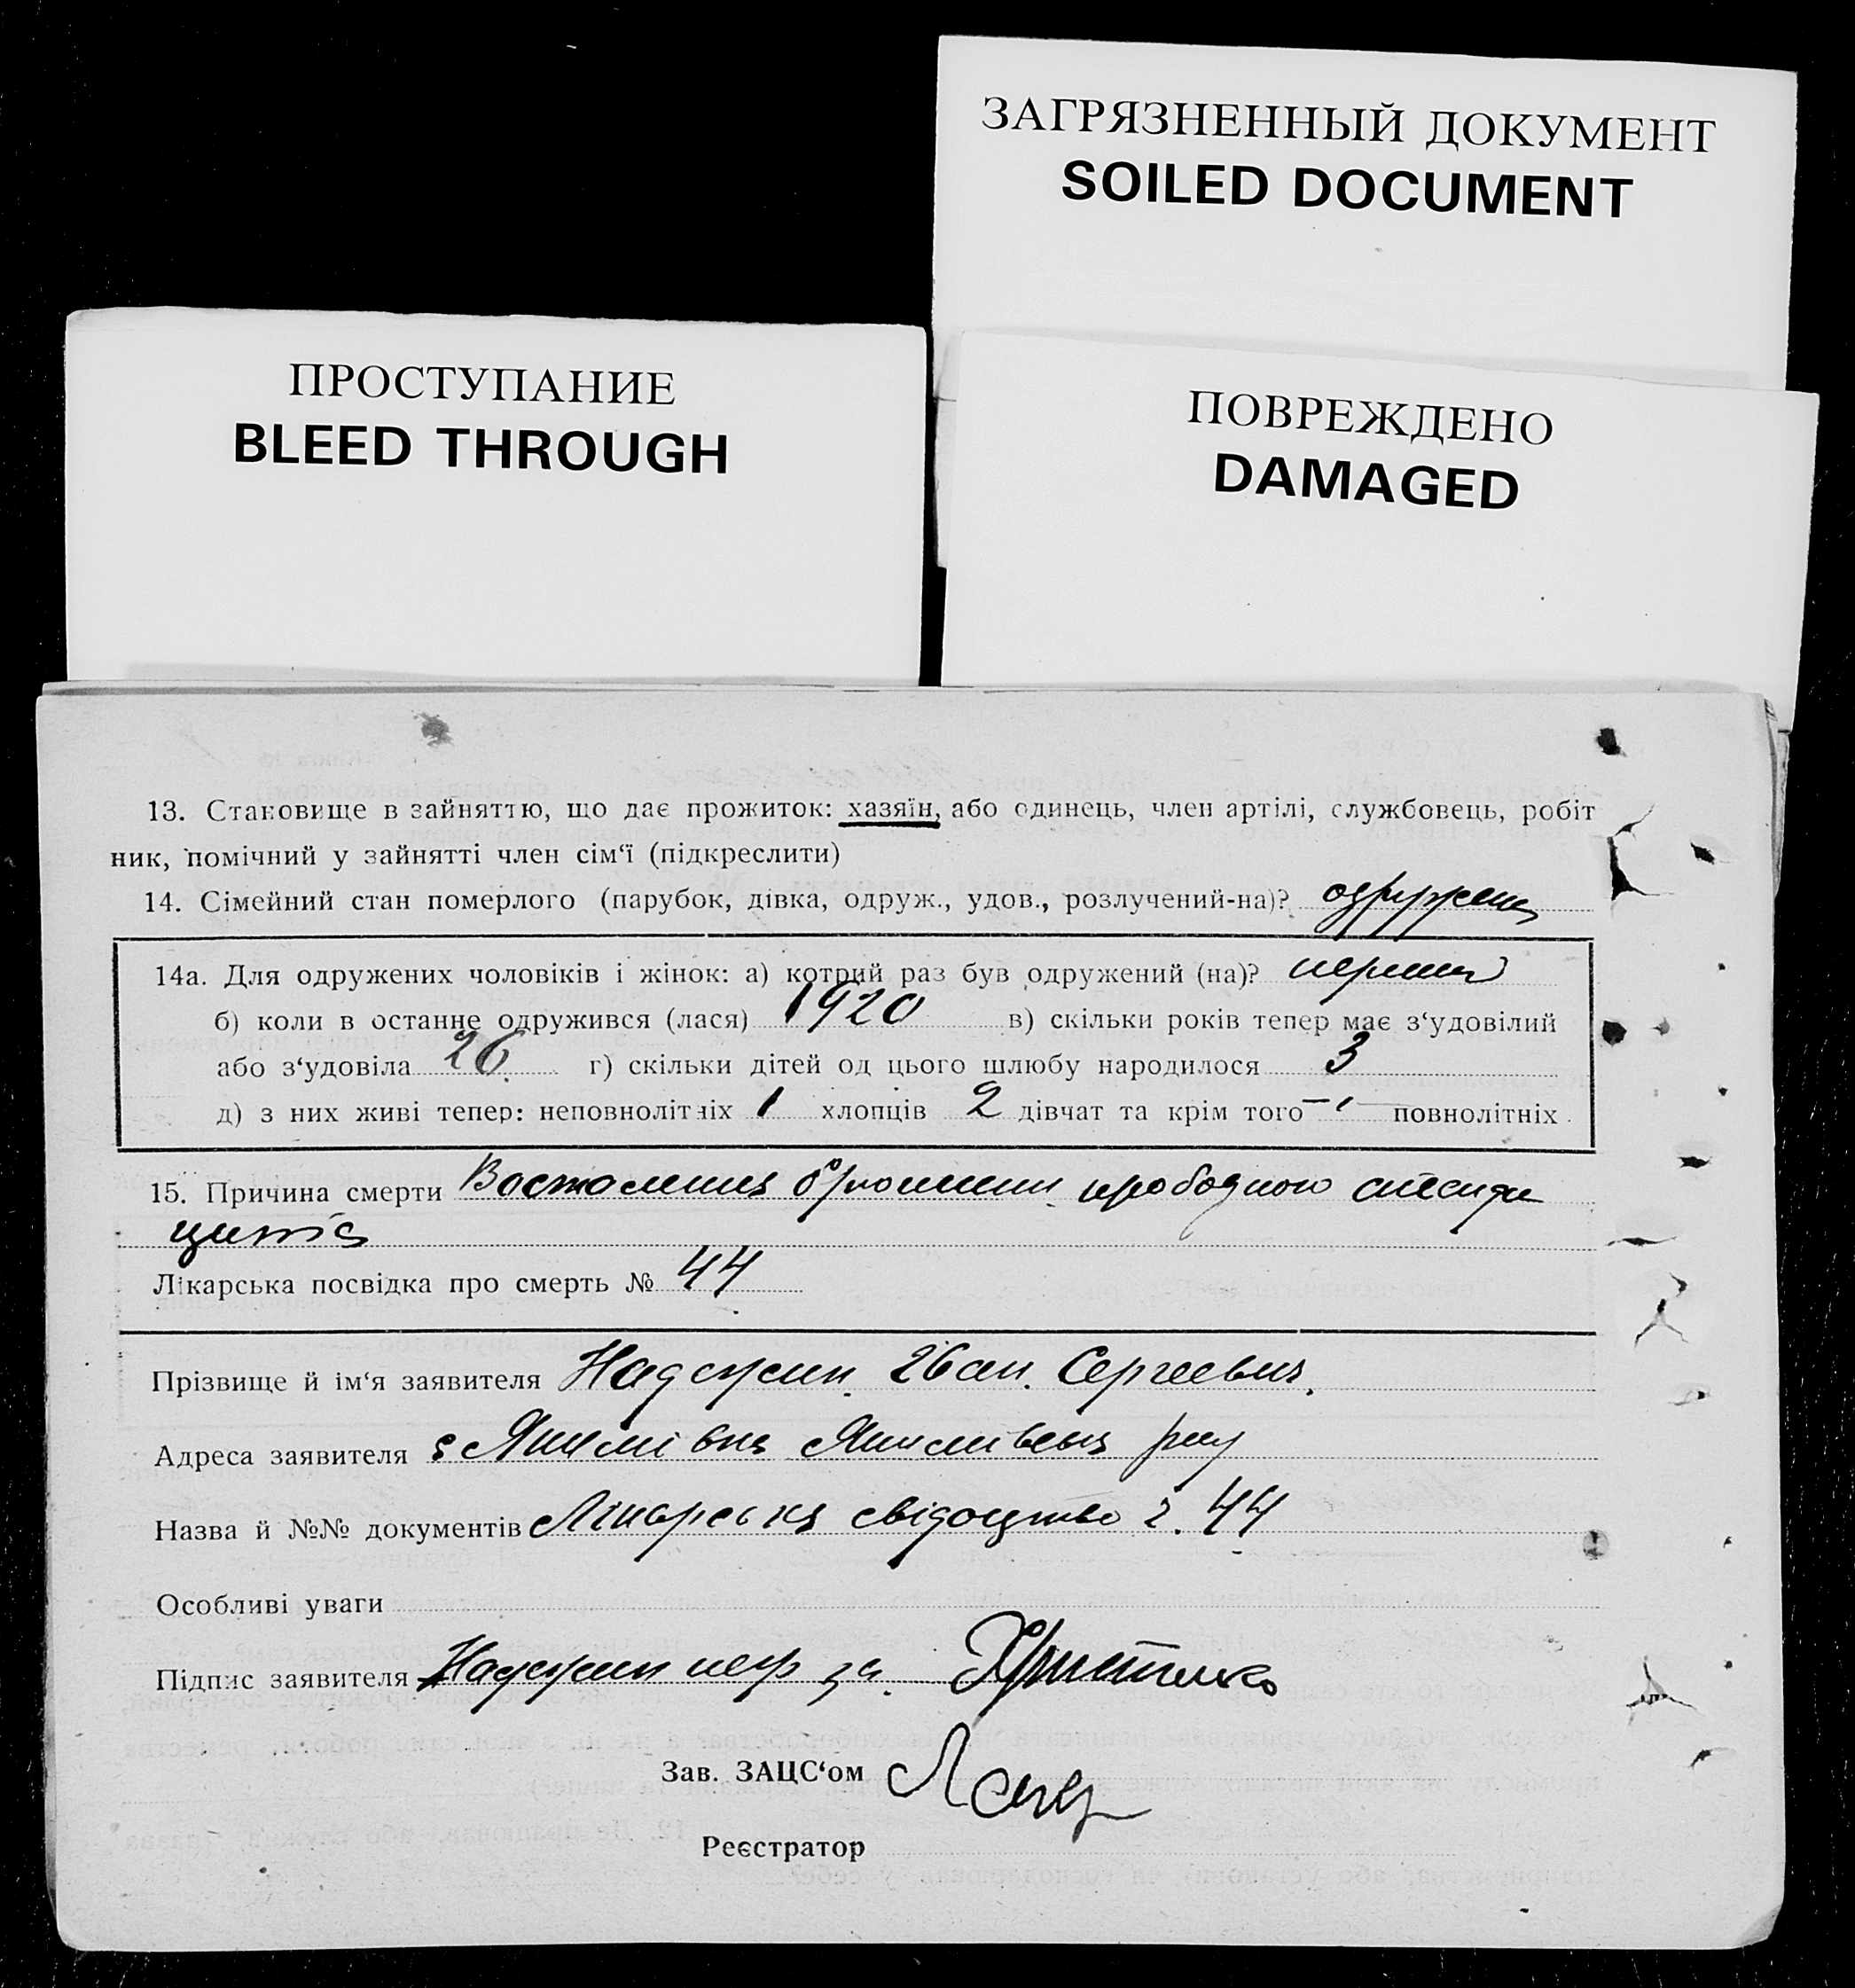 ЗАГРЯЗНЕННЫЙ ДОКУМЕНТ
SOILED DOCUMENT
ПРОСТУПАНИЕ
BLEED THROUGH
ПОВРЕЖДЕНО
DAMAGED
13. Становище в зайняттю, що дає прожиток: хазяїн, або одинець, член артілі, службовець, робіт
ник, помічний у зайнятті член сім‘ї (підкреслити)
14. Сімейний стан померлого (парубок, дівка, одруж., удов., розлучений-на)?
14а. Для одружених чоловіків і жінок: а) котрий раз був одружений (на)?
б) коли в останне одружився (лася) 1920 в) скільки років тепер має з‘удовілий
або з‘удовіла 26 г) скільки дітей од цього шлюбу народилося 3
д) з них живі тепер: неповнолітніх 1 хлопців 2 дівчат та крім того повнолітніх
15. Причина смерти
Лікарська посвідка про смерть № 44
Прізвище й ім‘я заявителя Иван Сергеевич
Адреса заявителя с Якимівка
Назва й №№ документів Лікарська свідоцтво ч. 44
Особливі уваги
Підпис заявителя
Зав. ЗАЦС‘ом
Реєстратор